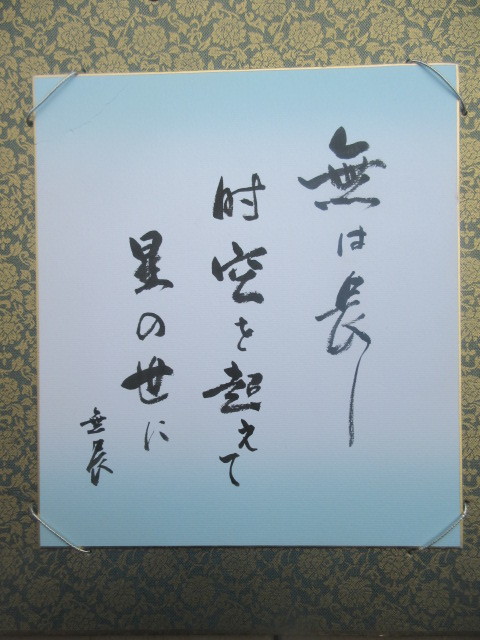 無は長し
时空を超えて
星の世に
無辰